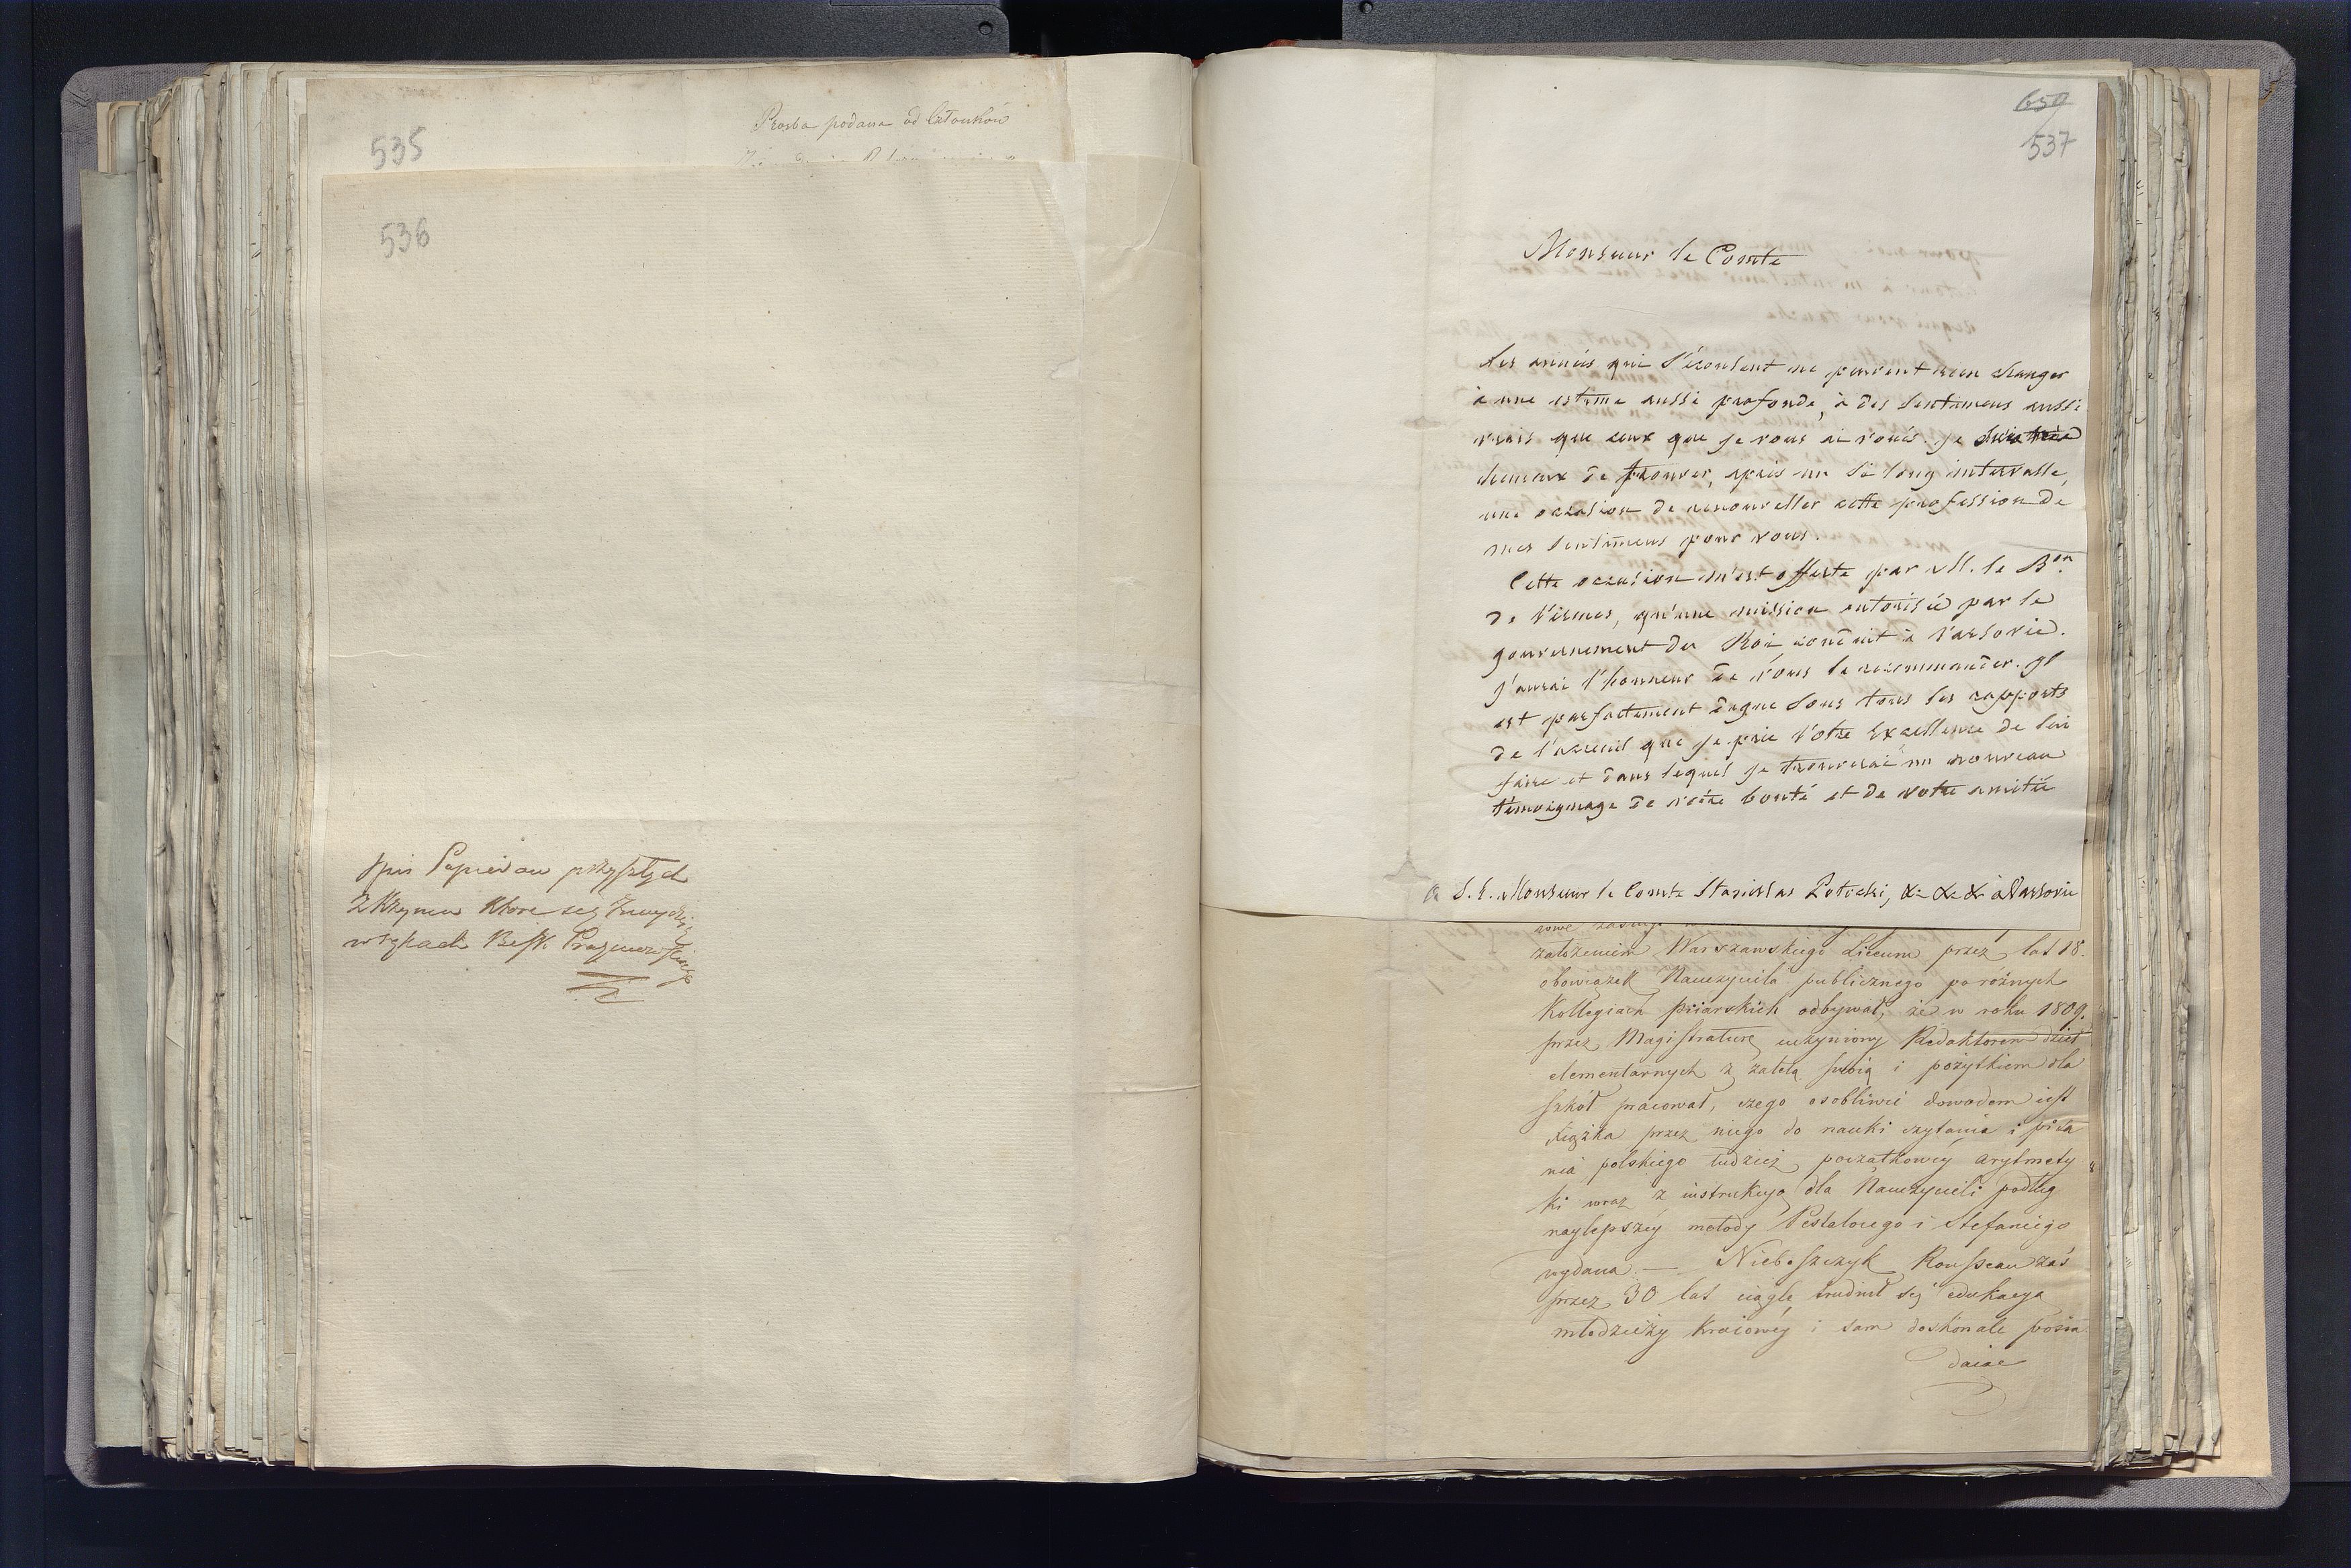 535
Prosba podana od Członków
536
Spis Papierow przyszłych
z Krzymu ktore się znaydują
w rękach Bisk. Prazmowskiego
650
537
Monsieur le Comte
Les années qui s'écoulent ne peuvent rien changer
à une estime aussi profonde, à des sentimens aussi
vrais que ceux que je vous ai voués. Je suis très
heureux de trouver, après un si long intervalle,
une occasion de renouveller cette profession de
mes sentimens pour vous.
Cette occasion m'est offerte par M. le Bon
de Viemes, qu'une mission autorisée par le
gouvernement du Roi conduit à Varsovie.
J'aurai l'honneur de vous le recommander. Il
est parfaitement digne sous tous les rapports
de l'accueil que je prie Votre Excellence de lui
faire et dans lequel je trouverai un nouveau
témoignage de votre bonté et de votre amitié
a S. E. Monsieur le Comte Stanislas Potocki, &c &c &c à Varsovie
założeniem Warszawskiego Liceum przez lat 18.
obowiązek Nauczyciela publicznego po róznych
Kollegiach Piiarskich odbywał, że w roku 1809.
przez Magistraturę uczyniony Redaktorem dzieł
elementarnych z zaletą swoią i pożytkiem dla
szkół pracował, czego osobliwie dowodem iest
Xiążka przez niego do nauki czytania i pisa
nia polskiego tudzież początkowey arytmety
ki wraz z instrukcyą dla Nauczycieli podług
naylepszey metody Pestalocego i Stefaniego
wydana. — Nieboszczyk Rousseau zaś
przez 30 lat ciągle trudnił się edukacyą
młodzieży kraiowey i sam doskonale posia
daiąc